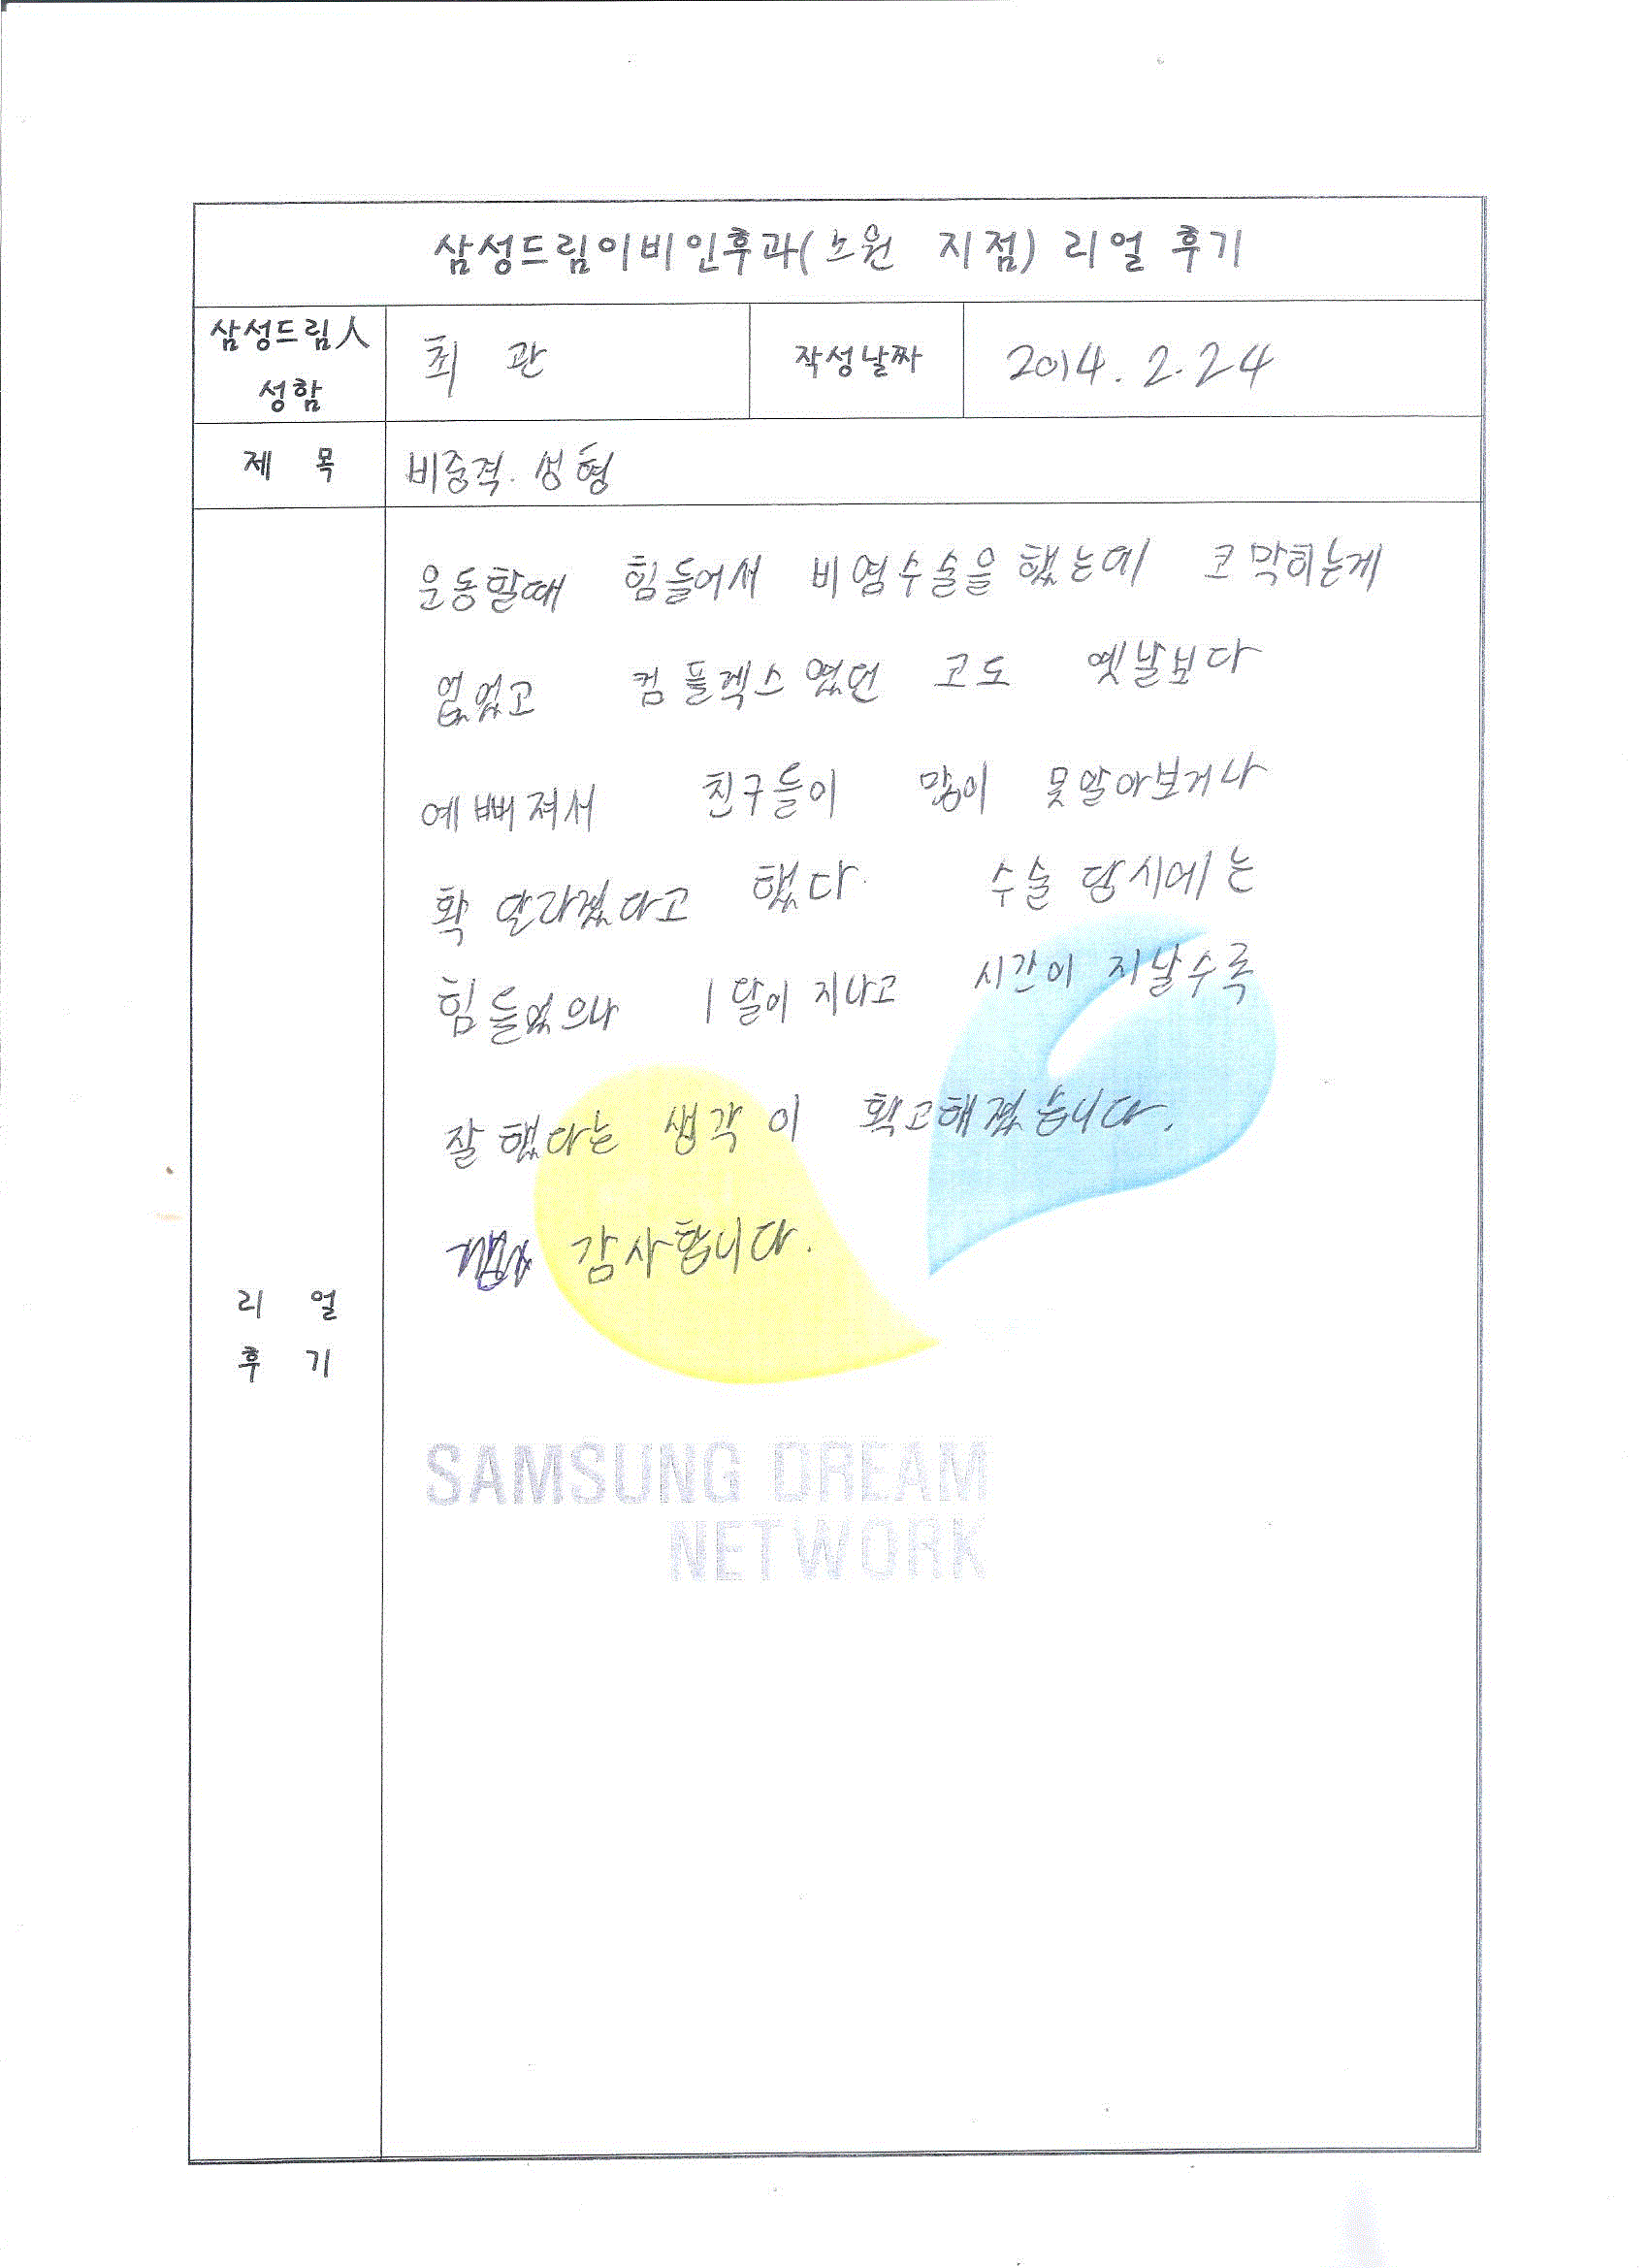 삼성드림이비인후과(노원 지점) 리얼 후기
삼성드림人 성함
최 관
작성날짜
2014. 2. 24
제 목
비중격. 성형
운동할때 힘들어서 비염수술을 했는데 코막히는게
없었고 컴플렉스였던 코도 옛날보다
예뻐져서 친구들이 많이 못알아보거나
확 달라졌다고 했다. 수술 당시에는
힘들었으나 1달이 지나고 시간이 지날수록
잘했다는 생각이 확고해졌습니다.
감사합니다.
리 얼
후 기
SAMSUNG DREAM
NETWORK